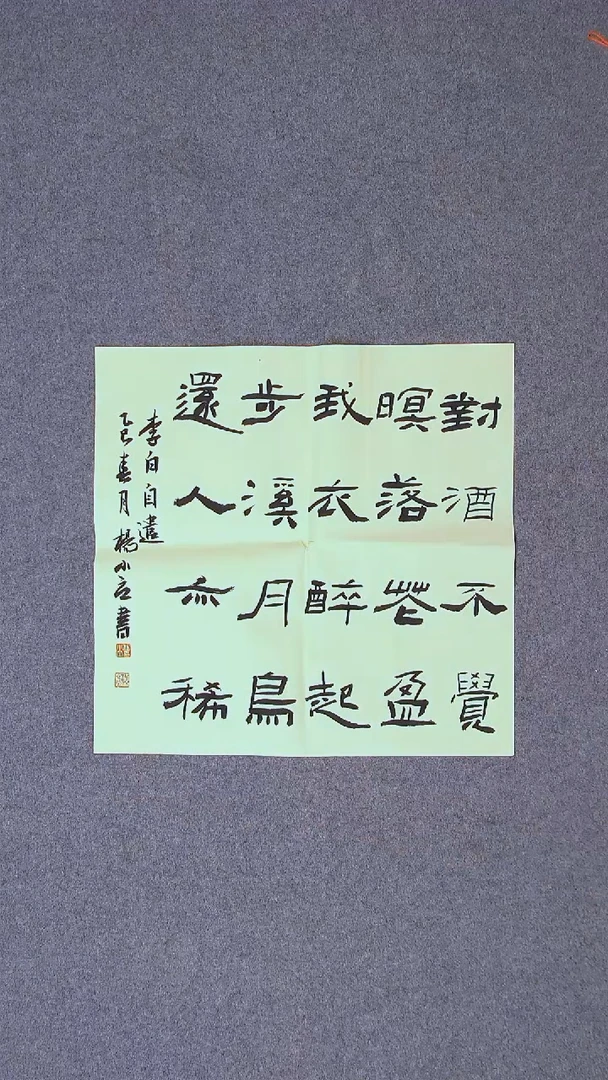 對酒不覺
暝落花盈
我衣醉起
步溪月鳥
還人亦稀
李白自遣
乙巳春月楊小
書